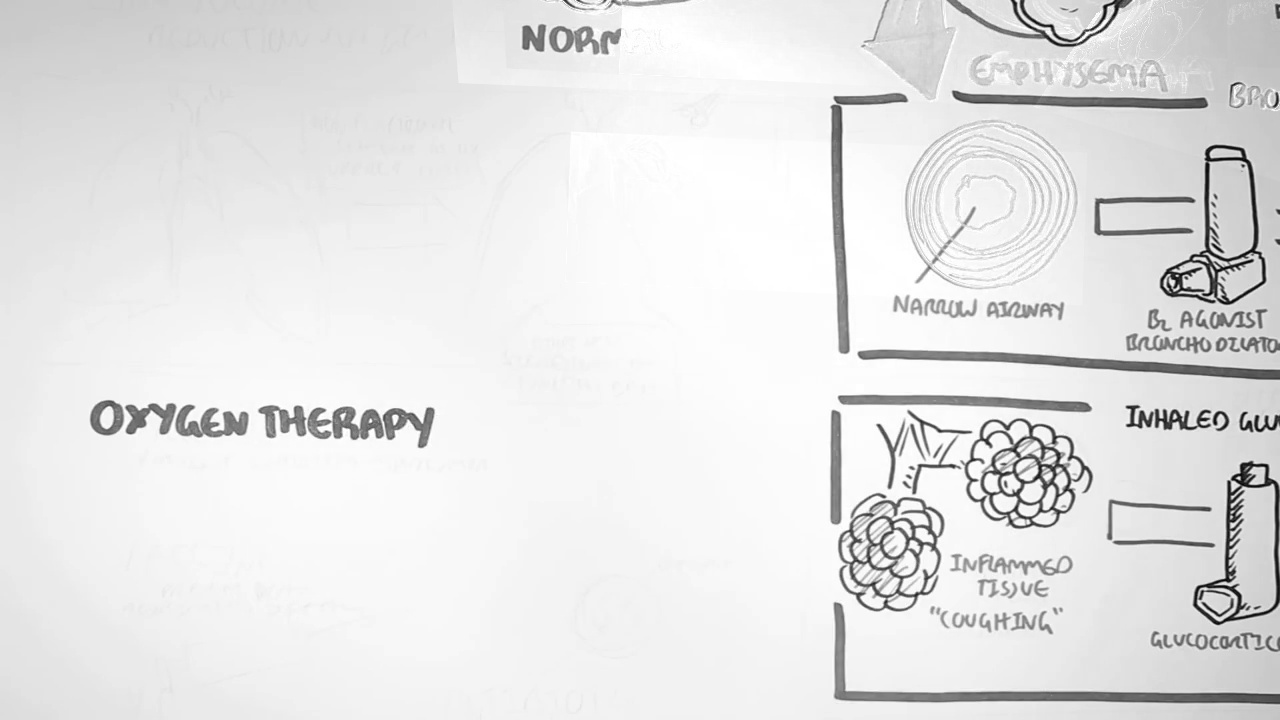 NORM
EMPHYSEMA
BRO
NARROW AIRWAY
B2 AGONIST
BRONCHODILATO
OXYGEN THERAPY
INHALED GLU
INFLAMMED
TISSUE
"COUGHING"
GLUCOCORTIC